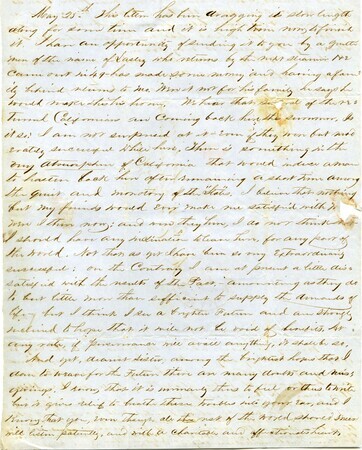 May 25th. This letter has been dragging its slow length
along for some time and it is high time
I have an opportunity of sending it to you by a gentle-
men of the name of who returns by the next steamer He
came out in '49 has made some money and having a fam-
ily behind returns to Were it not for his family he says he
would make this his home. We hear that of the re-
turned Californians are coming back here this summer. Is
it so? I am not surprised at it even if they were but mod-
erately successful while here. There is something in the
very atmosphere of California that would induce a man
to hasten back here after remaining a short time among
the quiet and monotony of the States. I believe that nothing
but my friends would ever make me satisfied with
them now; and were they here, I do not think
I should have any inclination to leave here for any part of
the world. Not that as yet I have been so very extraordinarily
successful; on the contrary I am at present a little dis-
satisfied with the results of the Past amounting as they do
to but little more than sufficient to supply the demands of
life; but I think I see a brighter Future and am strongly
inclined to hope that it will not be void of benefits. At
any rate, if perseverance will avail anything, it shall be so.
And yet, dearest sister, among the brightest hopes that I
dare to weave for the Future there are many doubts and misgi-
givings. I know that it is unmanly thus to feel or thus to write
but it gives relief to breathe them troubles into your ear, and I
know that you, even though all the rest of the world should
will listen patiently, and with a charitable and affectionate heart.